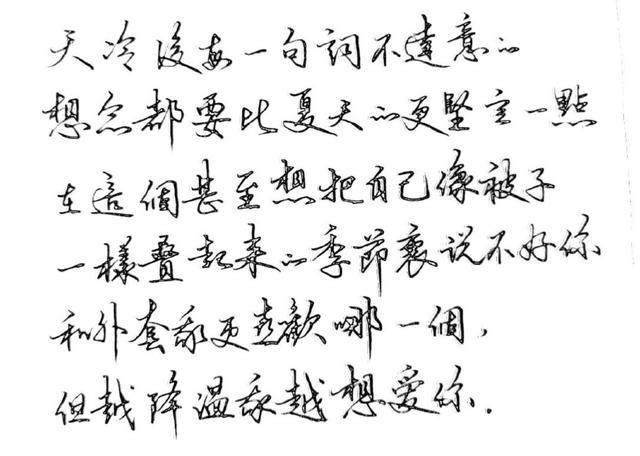 天冷後每一句詞不達意的
想念都要比夏天的更堅定一點
在這個甚至想把自己像被子
一樣疊起來的季節裏说不好你
和外套我更喜歡哪一個，
但越降温我越想爱你.